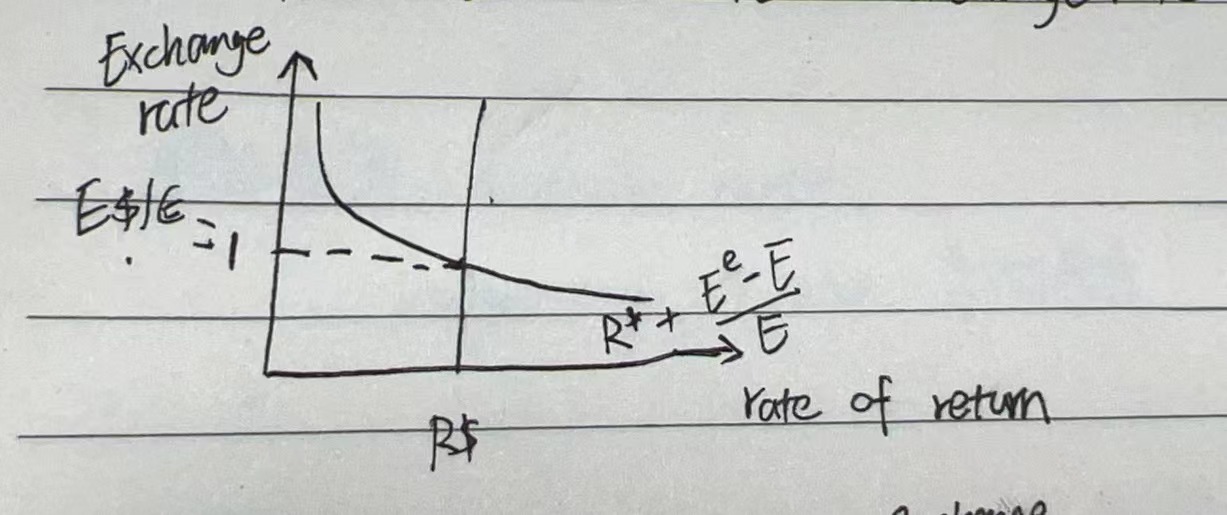 Exchange
rate
E$/€
= 1
R* + (E^e - E)/E
rate of return
R$